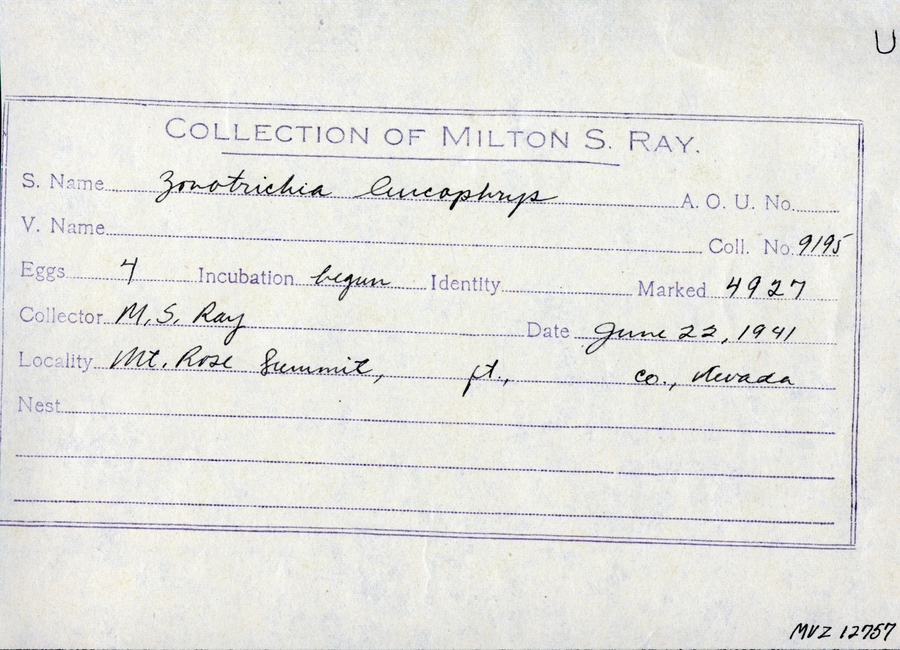 U
COLLECTION OF MILTON S. RAY.
S. Name Zonotrichia leucophrys A. O. U. No.
V. Name Coll. No. 9195
Eggs 4 Incubation begun Identity Marked 4927
Collector M. S. Ray Date June 22, 1941
Locality Mt. Rose Summit, ft., co., Nevada
Nest
MVZ 12757